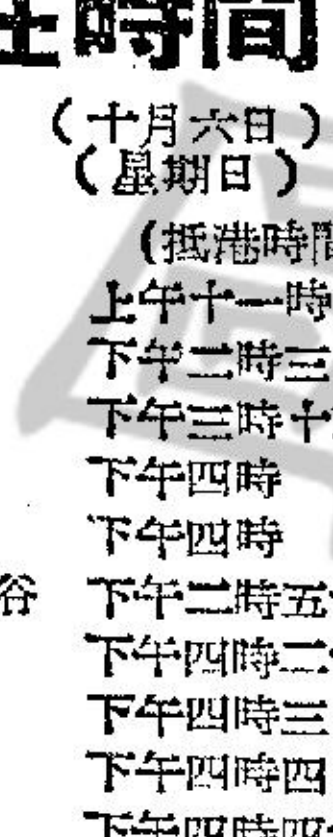 時間
（十月六日）
（星期日）
（抵港時間
上午十一時
下午二時三
下午三時十
下午四時
下午四時
下午二時五
下午四時二
下午四時三
下午四時四
下午四時四